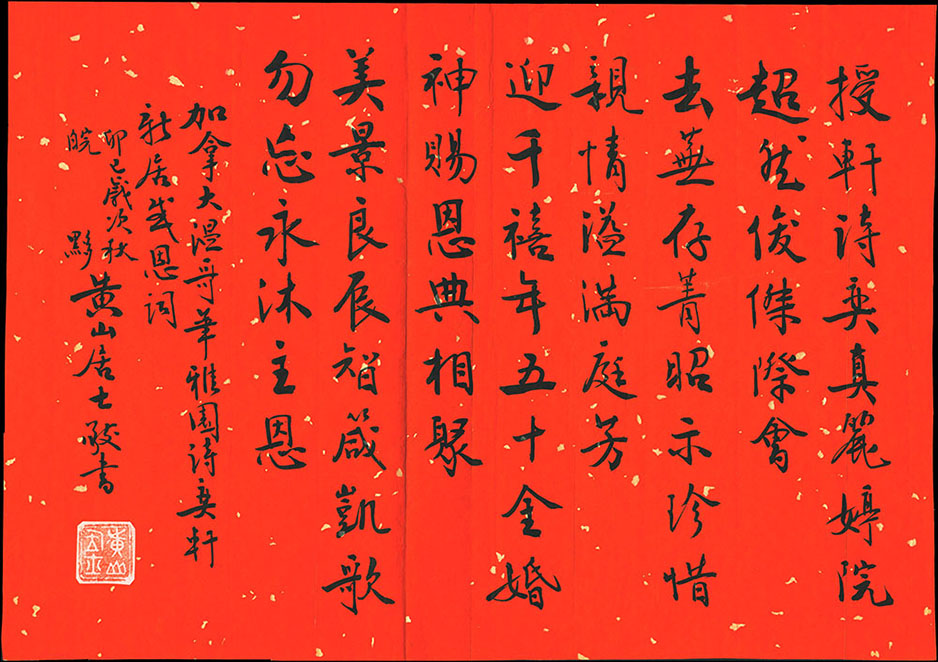 授軒詩奕真麗婷院
超然俊傑際會
去蕪存菁昭示珍惜
親情溢滿庭芳
迎千禧年五十金婚
神賜恩典相聚
美景良辰智箴凱歌
勿忘永沐主恩
加拿大溫哥華雅園詩奕軒
新居感恩詞
卯已歲次秋
皖黟黃山居士敬書
黃山居士